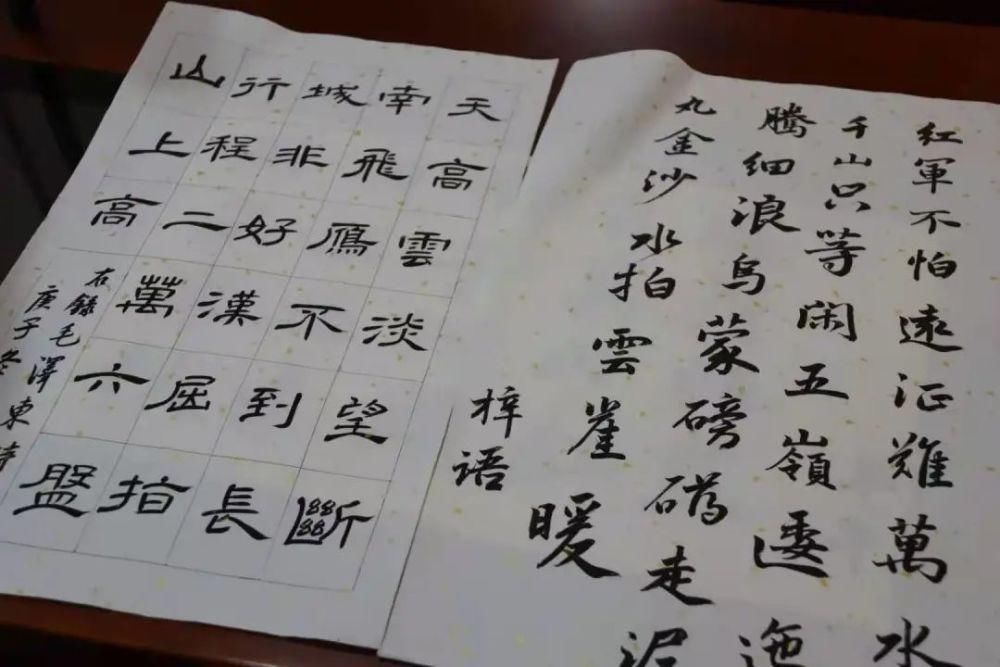 紅軍不怕遠征難萬水
千山只等闲五嶺逶迤
騰細浪烏蒙磅礴走泥
丸金沙水拍雲崖暖
梓语
天高雲淡望斷
南飛鴈不到長
城非好漢屈指
行程二萬六盤
山上高
右録毛澤東詩
庚子冬